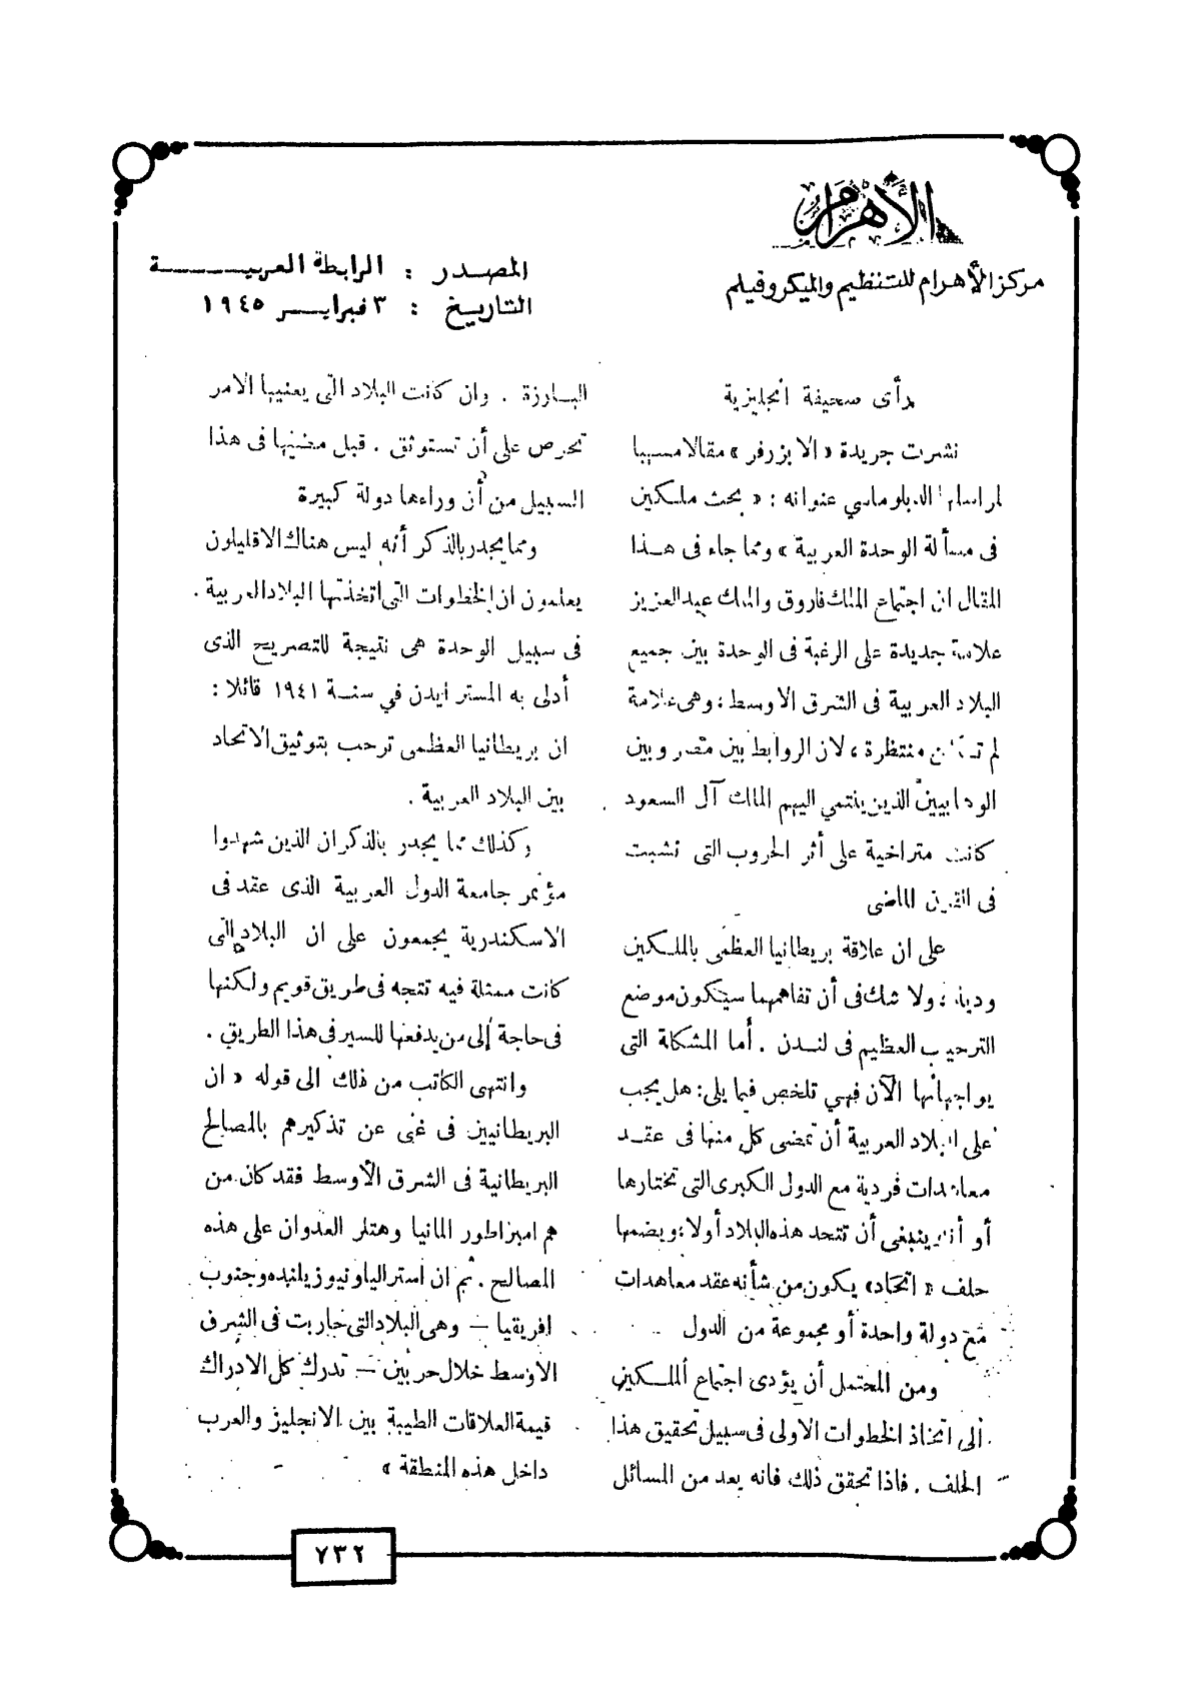 الأهرام
مركز الأهرام للتنظيم والميكروفيلم
المصدر : الرابطة العربية
التاريخ : ٣ فبراير ١٩٤٥
رأى صحيفة انجليزية
نشرت جريدة « الابزرفر » مقالا مسهبا
لمراسلها الدبلوماسي عنوانه : « بحث ملكين
فى مسألة الوحدة العربية » ومما جاء فى هذا
المقال ان اجتماع الملك فاروق والملك عبد العزيز
علامة جديدة على الرغبة فى الوحدة بين جميع
البلاد العربية فى الشرق الاوسط ، وهى علامة
لم تكن منتظرة ، لان الروابط بين مصر وبين
الوهابيين الذين ينتمي اليهم الملك آل السعود
كانت متراخية على أثر الحروب التى نشبت
فى القرن الماضى
على ان علاقة بريطانيا العظمى بالملكين
ودية ، ولا شك فى أن تفاهمهما سيكون موضع
الترحيب العظيم فى لندن . أما المشكلة التى
يواجهانها الآن فهي تلخص فيما يلى : هل يجب
على البلاد العربية أن تمضى كل منها فى عقد
معاهدات فردية مع الدول الكبرى التى تختارها
أو أنه ينبغى أن تتحد هذه البلاد أولا ، ويضمها
حلف « اتحاد » يكون من شأنه عقد معاهدات
مع دولة واحدة أو مجموعة من الدول
ومن المحتمل أن يؤدى اجتماع الملكين
الى اتخاذ الخطوات الاولى فى سبيل تحقيق هذا
الحلف . فاذا تحقق ذلك فانه يعد من المسائل
البارزة . وان كانت البلاد التى يعنيها الامر
تحرص على أن تستوثق . قبل مضيها فى هذا
السبيل من أن وراءها دولة كبيرة
ومما يجدر بالذكر أنه ليس هناك الا قليلون
يعلمون ان الخطوات التى اتخذتها البلاد العربية .
فى سبيل الوحدة هى نتيجة للتصريح الذى
أدلى به المستر ايدن في سنة ١٩٤١ قائلا :
ان بريطانيا العظمى ترحب بتوثيق الاتحاد
بين البلاد العربية .
وكذلك مما يجدر بالذكر ان الذين شهدوا
مؤتمر جامعة الدول العربية الذى عقد فى
الاسكندرية يجمعون على ان البلاد التى
كانت ممثلة فيه تتجه فى طريق قويم ولكنها
فى حاجة إلى من يدفعها للسير فى هذا الطريق .
وانتهى الكاتب من ذلك الى قوله « ان
البريطانيين فى غنى عن تذكيرهم بالمصالح
البريطانية فى الشرق الأوسط فقد كان من
هم امبراطور المانيا وهتلر العدوان على هذه
المصالح . ثم ان استراليا ونيوزيلنده وجنوب
افريقيا — وهى البلاد التى حاربت فى الشرق
الاوسط خلال حربين — تدرك كل الادراك
قيمة العلاقات الطيبة بين الانجليز والعرب
داخل هذه المنطقة »
٧٣٢